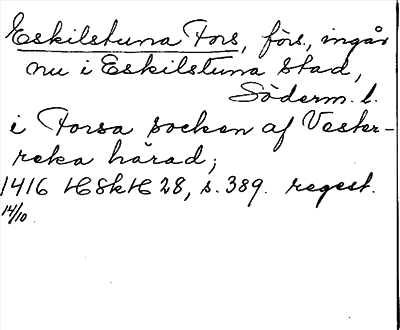 Eskilstuna Fors, förs., ingår
nu i Eskilstuna stad,
Söderm. l.
i Forsa socken af Vester-
reka härad;
1416 HSkH 28, s. 389. regest.
14/10.